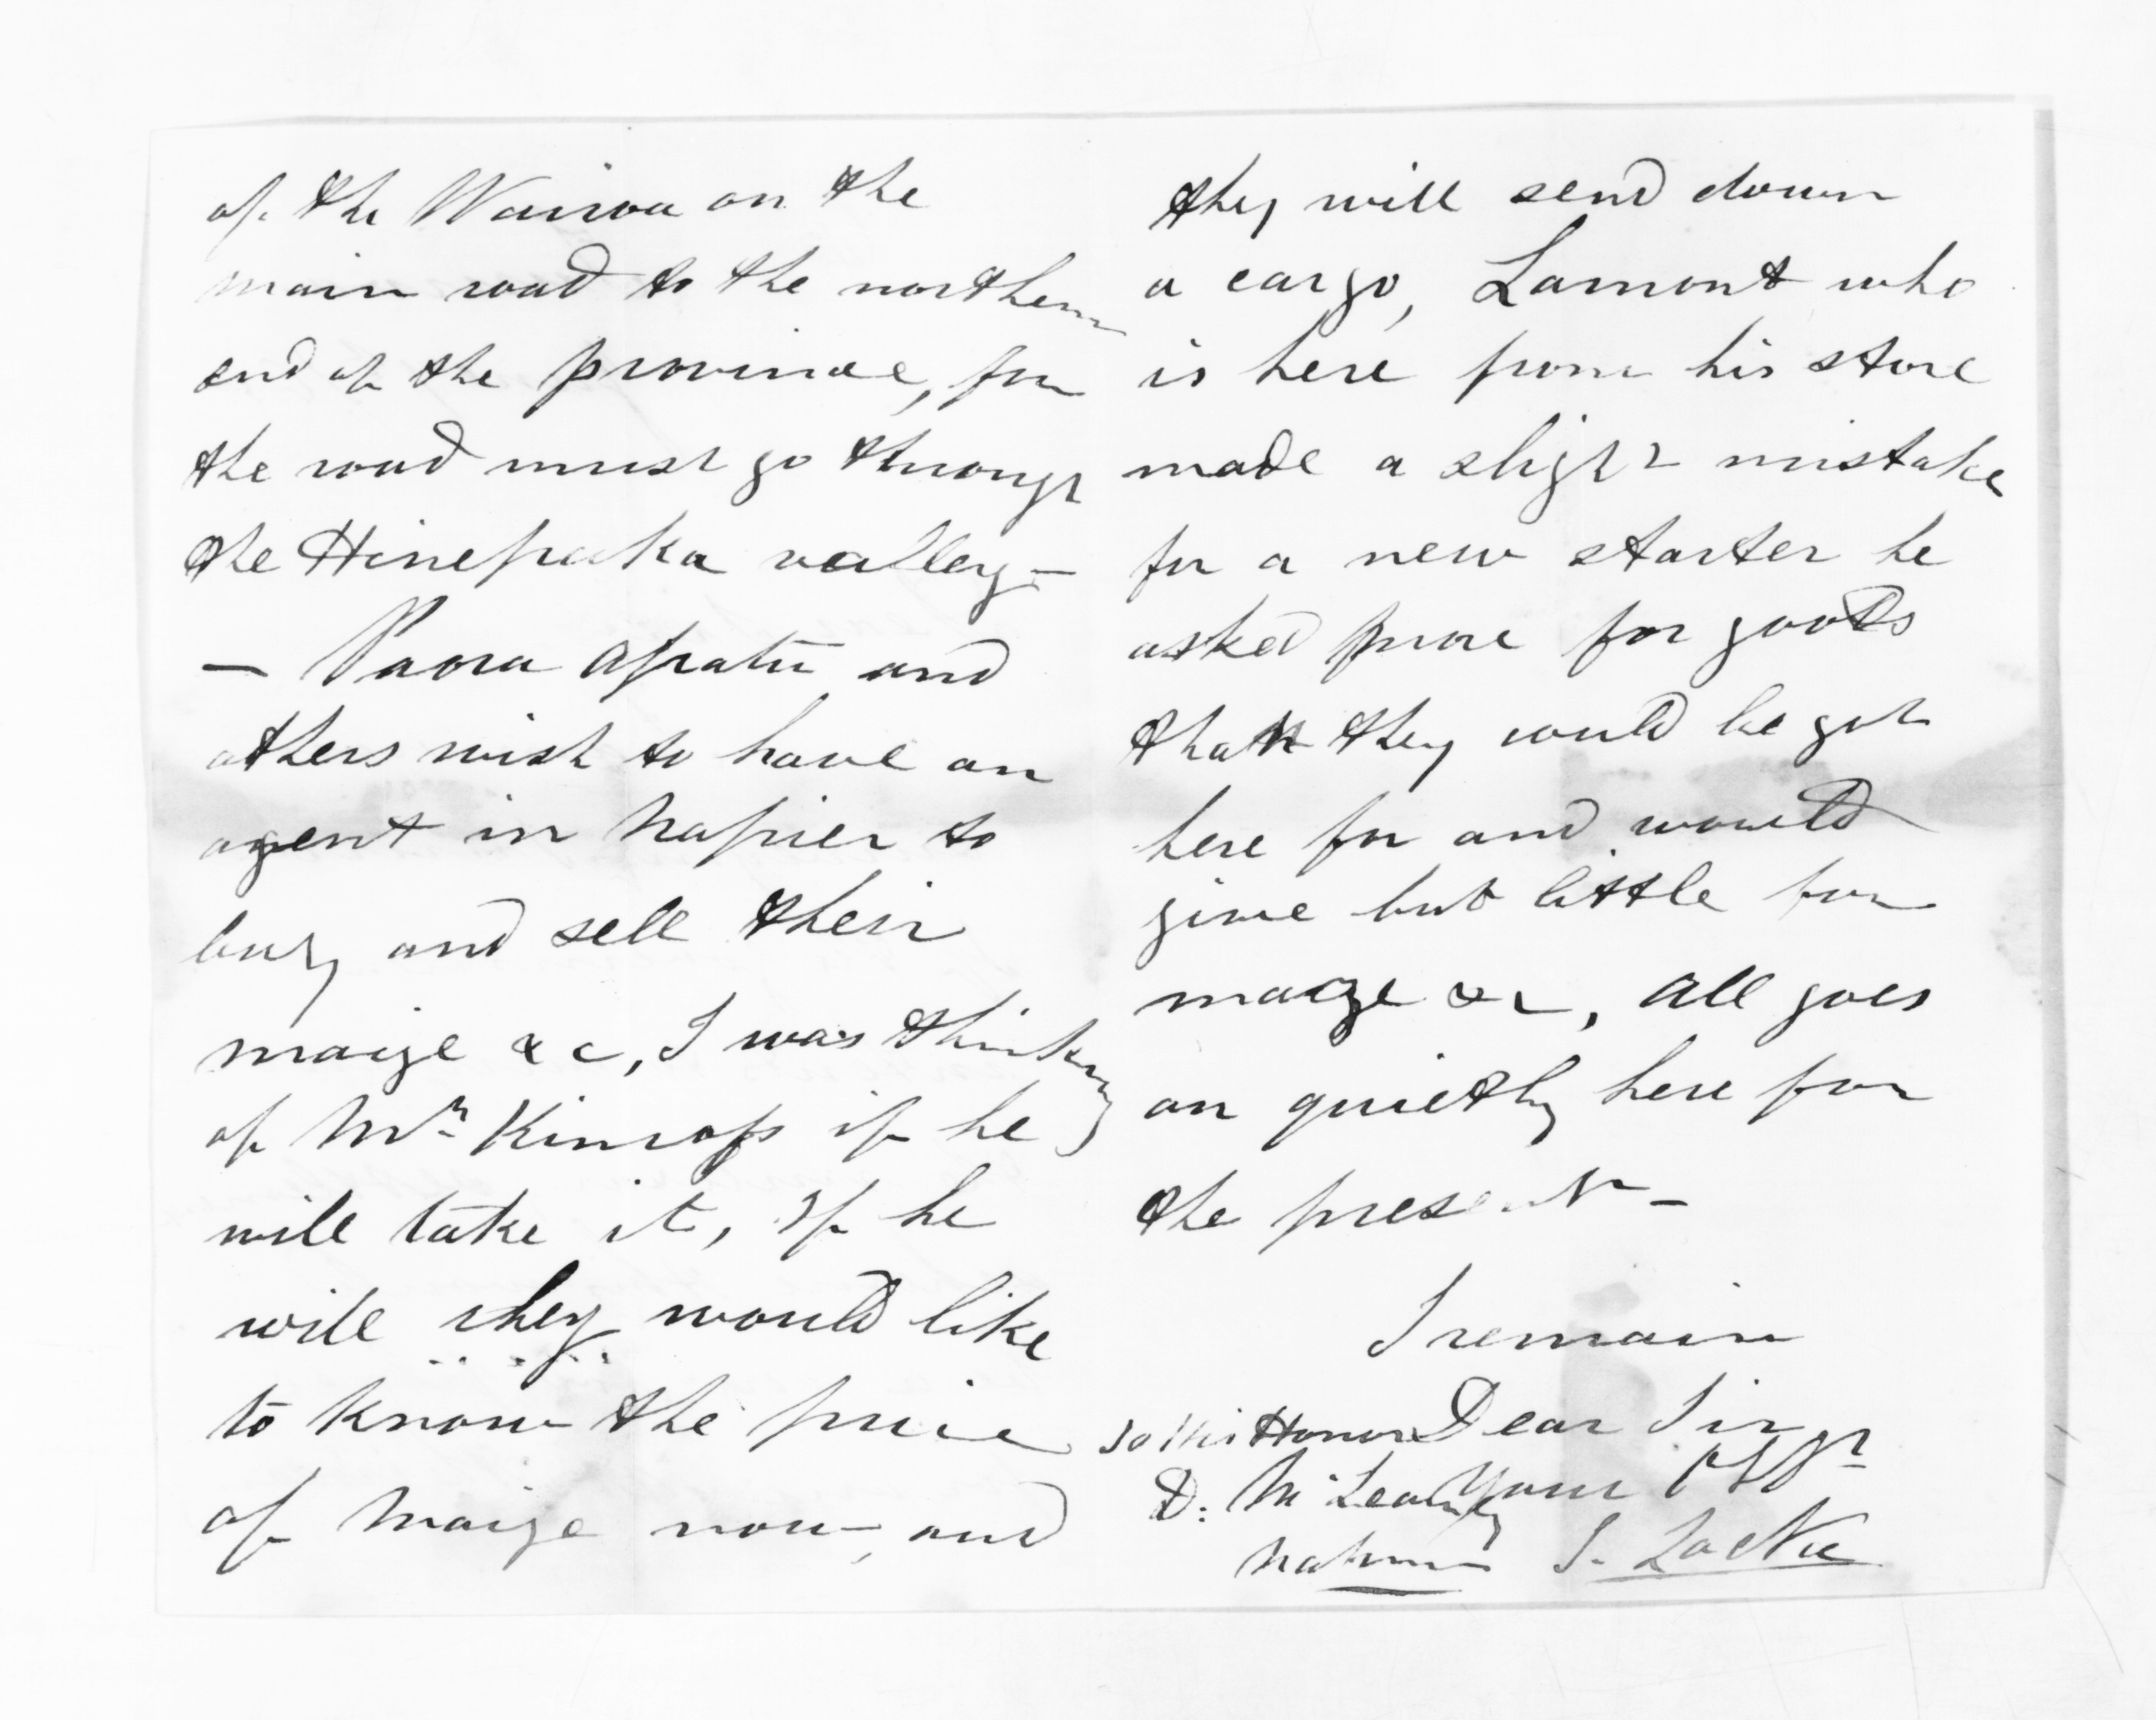 of the Wairoa on the
main road to the northern
end of the province, for
the road must go through
the Hinepaka valley —
— Paora Apatu and
others wish to have an
agent in Napier to
buy and sell their
maize &c, I was thinking
of Mr Kinross if he
will take it, If he
will they would like
to know the price
of maize now, and
they will send down
a cargo, Lamont who
is here from his store
made a slight mistake
for a new starter he
asked more for goods
than they could be got
here for and would
give but little for
maize &c, all goes
on quietly here for
the present —
I remain
Dear Sir
Your
S. Locke
To His Honor
D. McLean Esq
Napier